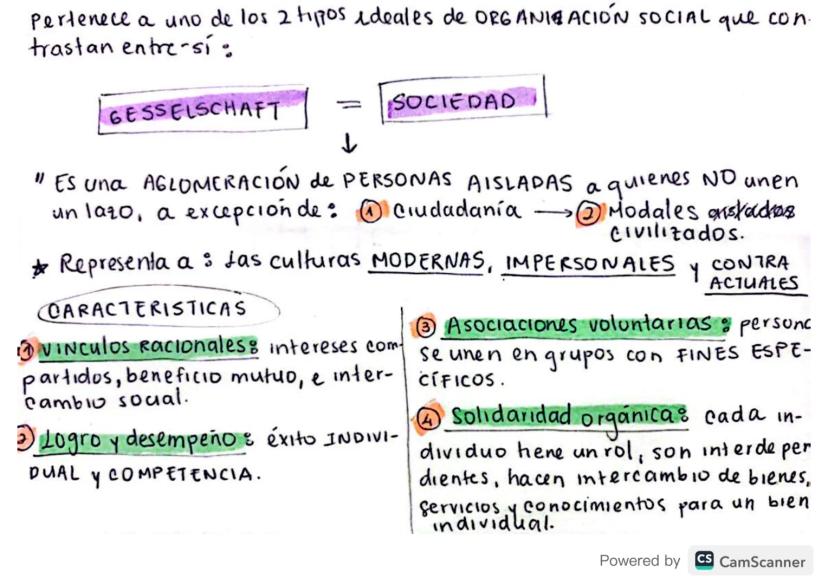 Pertenece a uno de los 2 tipos ideales de ORGANISACIÓN SOCIAL que con
trastan entre-sí :
GESSELSCHAFT = SOCIEDAD
↓
" ES una AGLOMERACIÓN de PERSONAS AISLADAS a quienes NO unen
un lazo, a excepción de : ① Ciudadanía → ② Modales
civilizados.
★ Representa a : las culturas MODERNAS, IMPERSONALES y CONTRA
ACTUALES
CARACTERISTICAS
① VINCULOS RACIONALES : intereses com-
partidos, beneficio mutuo, e inter-
cambio social.
② Logro y desempeño : éxito INDIVI-
DUAL y COMPETENCIA.
③ Asociaciones voluntarias : persona
se unen en grupos con FINES ESPE-
CÍFICOS.
④ Solidaridad orgánica : cada in-
dividuo tiene un rol, son interdepen
dientes, hacen intercambio de bienes,
servicios y conocimientos para un bien
individual.
Powered by CS CamScanner